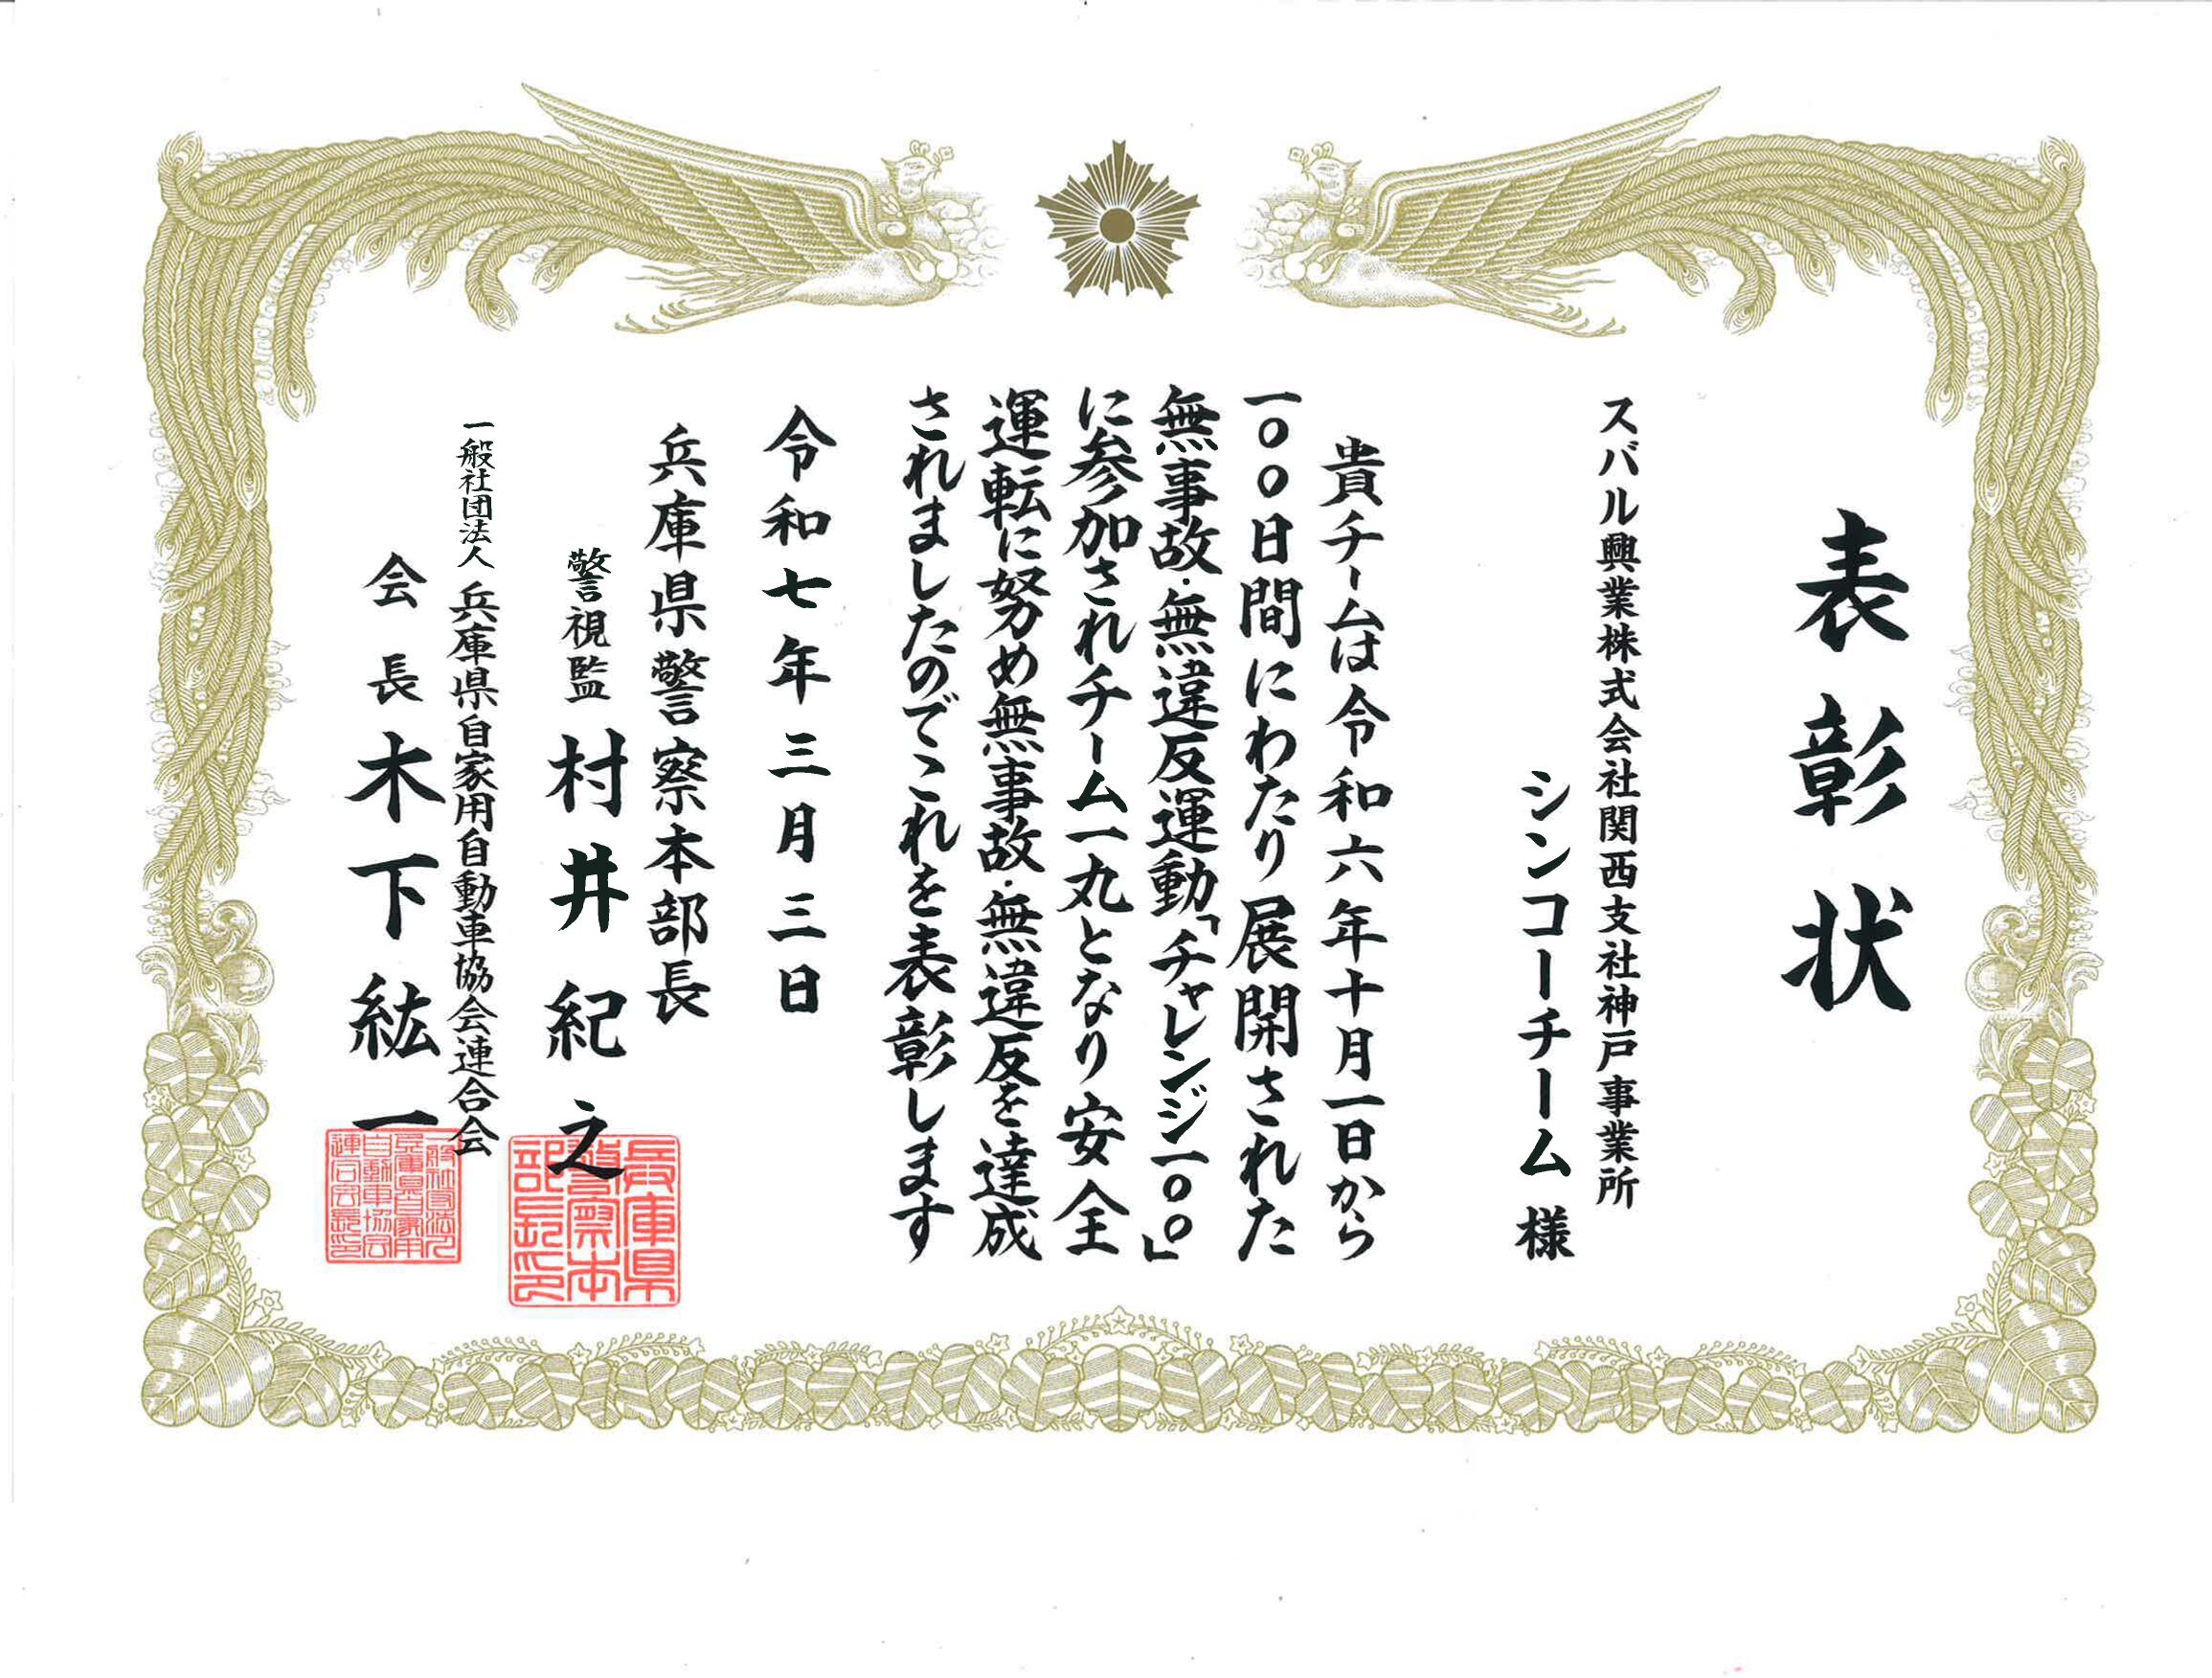 表彰状
スバル興業株式会社関西支社神戸事業所
シンコーチーム様
貴チームは令和六年十月一日から
一〇〇日間にわたり展開された
無事故・無違反運動「チャレンジ一〇〇」
に参加されチーム一丸となり安全
運転に努め無事故・無違反を達成
されましたのでこれを表彰します
令和七年三月三日
兵庫県警察本部長
警視監 村井紀之
一般社団法人 兵庫県自家用自動車協会連合会
会長 木下紘一
兵庫県
警察本
部長印
一般社団法人
兵庫県自家用
自動車協会
連合会長印